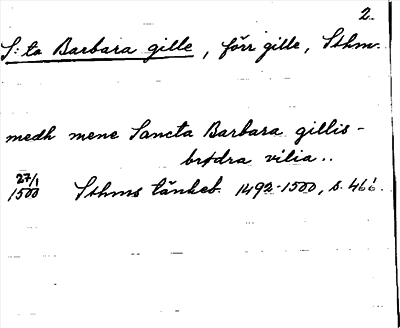 2.
S:ta Barbara gille, förr gille, Sthm.
medh mene Sancta Barbara gillis-
brödra vilia..
27/1 1500 Sthms tänkeb. 1492-1500, s. 466.